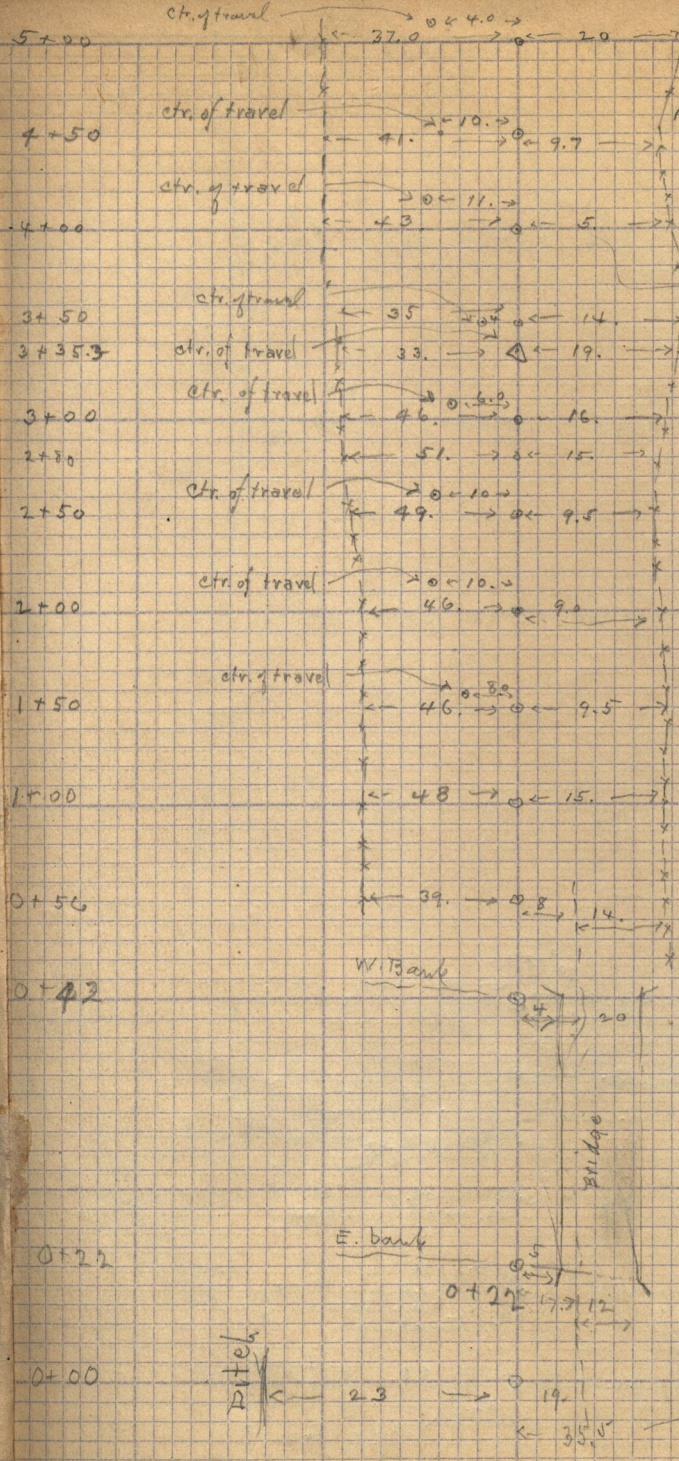 ctr. of travel 4.0
5+00 37.0 20
ctr. of travel 10.
4+50 41. 9.7
ctr. of travel 11.
4+00 43. 5.
ctr. of travel
3+50 35 14.
3+35.3 ctr. of travel 33. 19.
ctr. of travel 6.0
3+00 46. 16.
2+80 51. 15.
ctr. of travel 10
2+50 49. 9.5
ctr. of travel 10.
2+00 46. 9.0
ctr. of travel 8.0
1+50 46. 9.5
1+00 48 15.
0+56 39. 8 14.
W. Bank
0+42 4 20
Bridge
0+22 E. bank 5
0+22 12
Ditch
0+00 23 19.
35.5